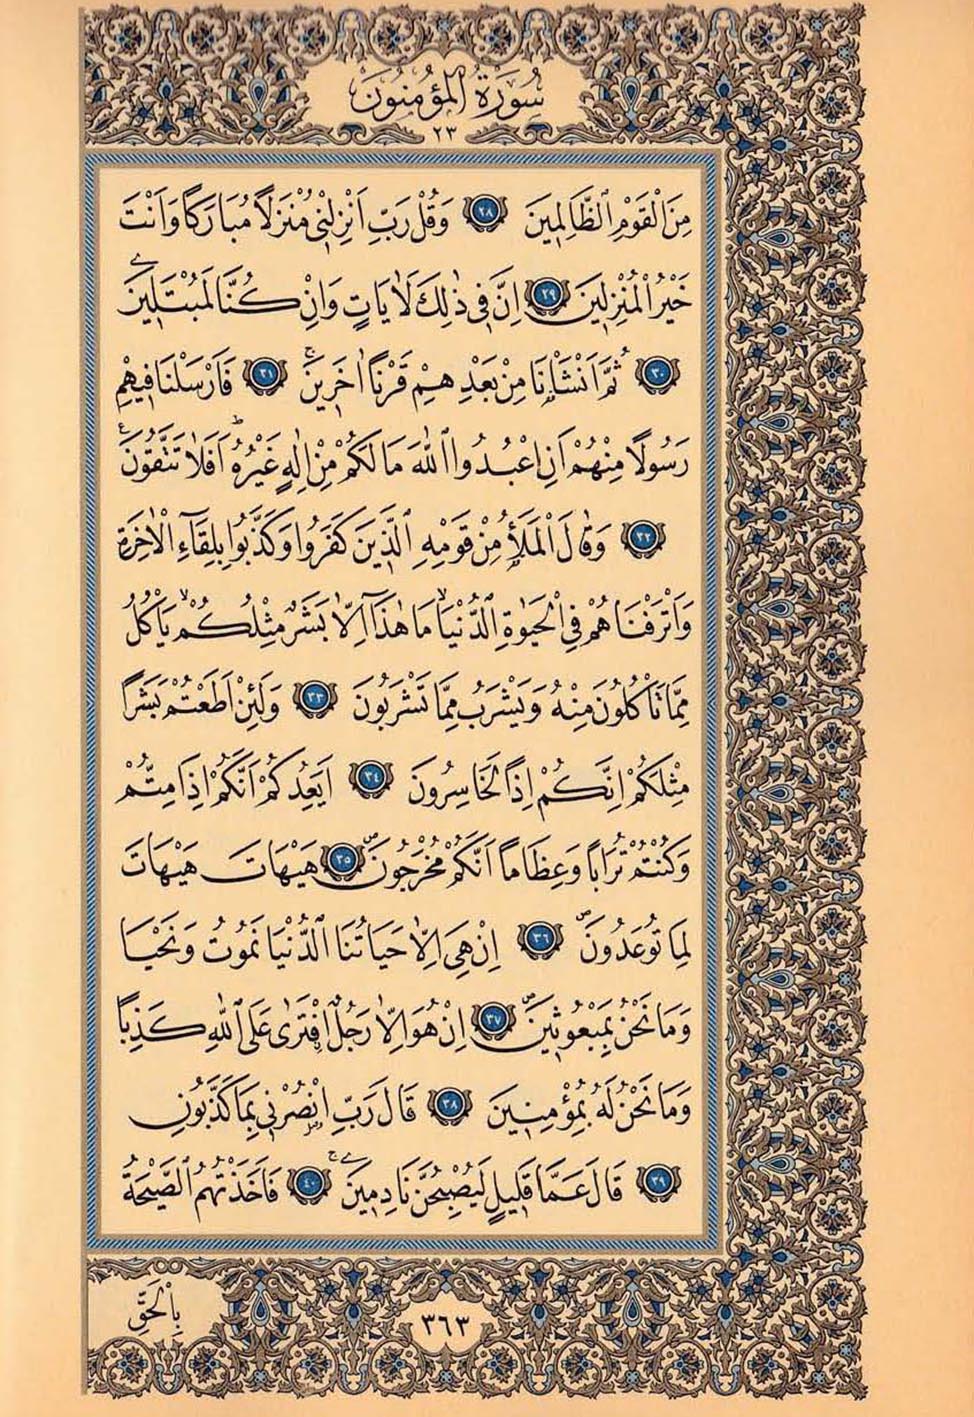 سُورَةُ الْمُؤْمِنُونَ
٢٣
مِنَ الْقَوْمِ الظَّالِمِينَ ٢٨ وَقُلْ رَبِّ اَنْزِلْنِي مُنْزَلًا مُبَارَكًا وَاَنْتَ
خَيْرُ الْمُنْزِلِينَ ٢٩ اِنَّ فِي ذٰلِكَ لَاٰيَاتٍ وَاِنْ كُنَّا لَمُبْتَلِينَ
٣٠ ثُمَّ اَنْشَأْنَا مِنْ بَعْدِهِمْ قَرْنًا اٰخَرِينَۚ ٣١ فَاَرْسَلْنَا فِيهِمْ
رَسُولًا مِنْهُمْ اَنِ اعْبُدُوا اللّٰهَ مَا لَكُمْ مِنْ اِلٰهٍ غَيْرُهُۜ اَفَلَا تَتَّقُونَ
٣٢ وَقَالَ الْمَلَأُ مِنْ قَوْمِهِ الَّذِينَ كَفَرُوا وَكَذَّبُوا بِلِقَاءِ الْاٰخِرَةِ
وَاَتْرَفْنَاهُمْ فِي الْحَيٰوةِ الدُّنْيَاۙ مَا هٰذَٓا اِلَّا بَشَرٌ مِثْلُكُمْۙ يَأْكُلُ
مِمَّا تَأْكُلُونَ مِنْهُ وَيَشْرَبُ مِمَّا تَشْرَبُونَ ٣٣ وَلَئِنْ اَطَعْتُمْ بَشَرًا
مِثْلَكُمْ اِنَّكُمْ اِذًا لَخَاسِرُونَ ٣٤ اَيَعِدُكُمْ اَنَّكُمْ اِذَا مِتُّمْ
وَكُنْتُمْ تُرَابًا وَعِظَامًا اَنَّكُمْ مُخْرَجُونَۖ ٣٥ هَيْهَاتَ هَيْهَاتَ
لِمَا تُوعَدُونَۖ ٣٦ اِنْ هِيَ اِلَّا حَيَاتُنَا الدُّنْيَا نَمُوتُ وَنَحْيَا
وَمَا نَحْنُ بِمَبْعُوثِينَۖ ٣٧ اِنْ هُوَ اِلَّا رَجُلٌۨ افْتَرٰى عَلَى اللّٰهِ كَذِبًا
وَمَا نَحْنُ لَهُ بِمُؤْمِنِينَ ٣٨ قَالَ رَبِّ انْصُرْنِي بِمَا كَذَّبُونِ
٣٩ قَالَ عَمَّا قَلِيلٍ لَيُصْبِحُنَّ نَادِمِينَۚ ٤٠ فَاَخَذَتْهُمُ الصَّيْحَةُ
بِالْحَقِّ
٣٦٣